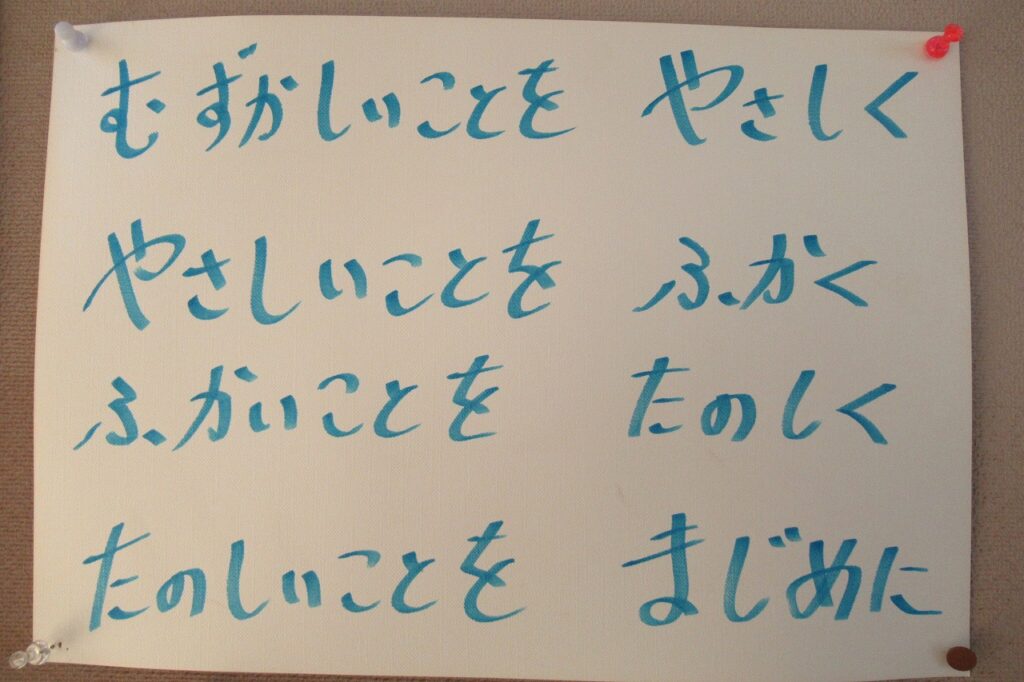 むずかしいことを やさしく
やさしいことを ふかく
ふかいことを たのしく
たのしいことを まじめに